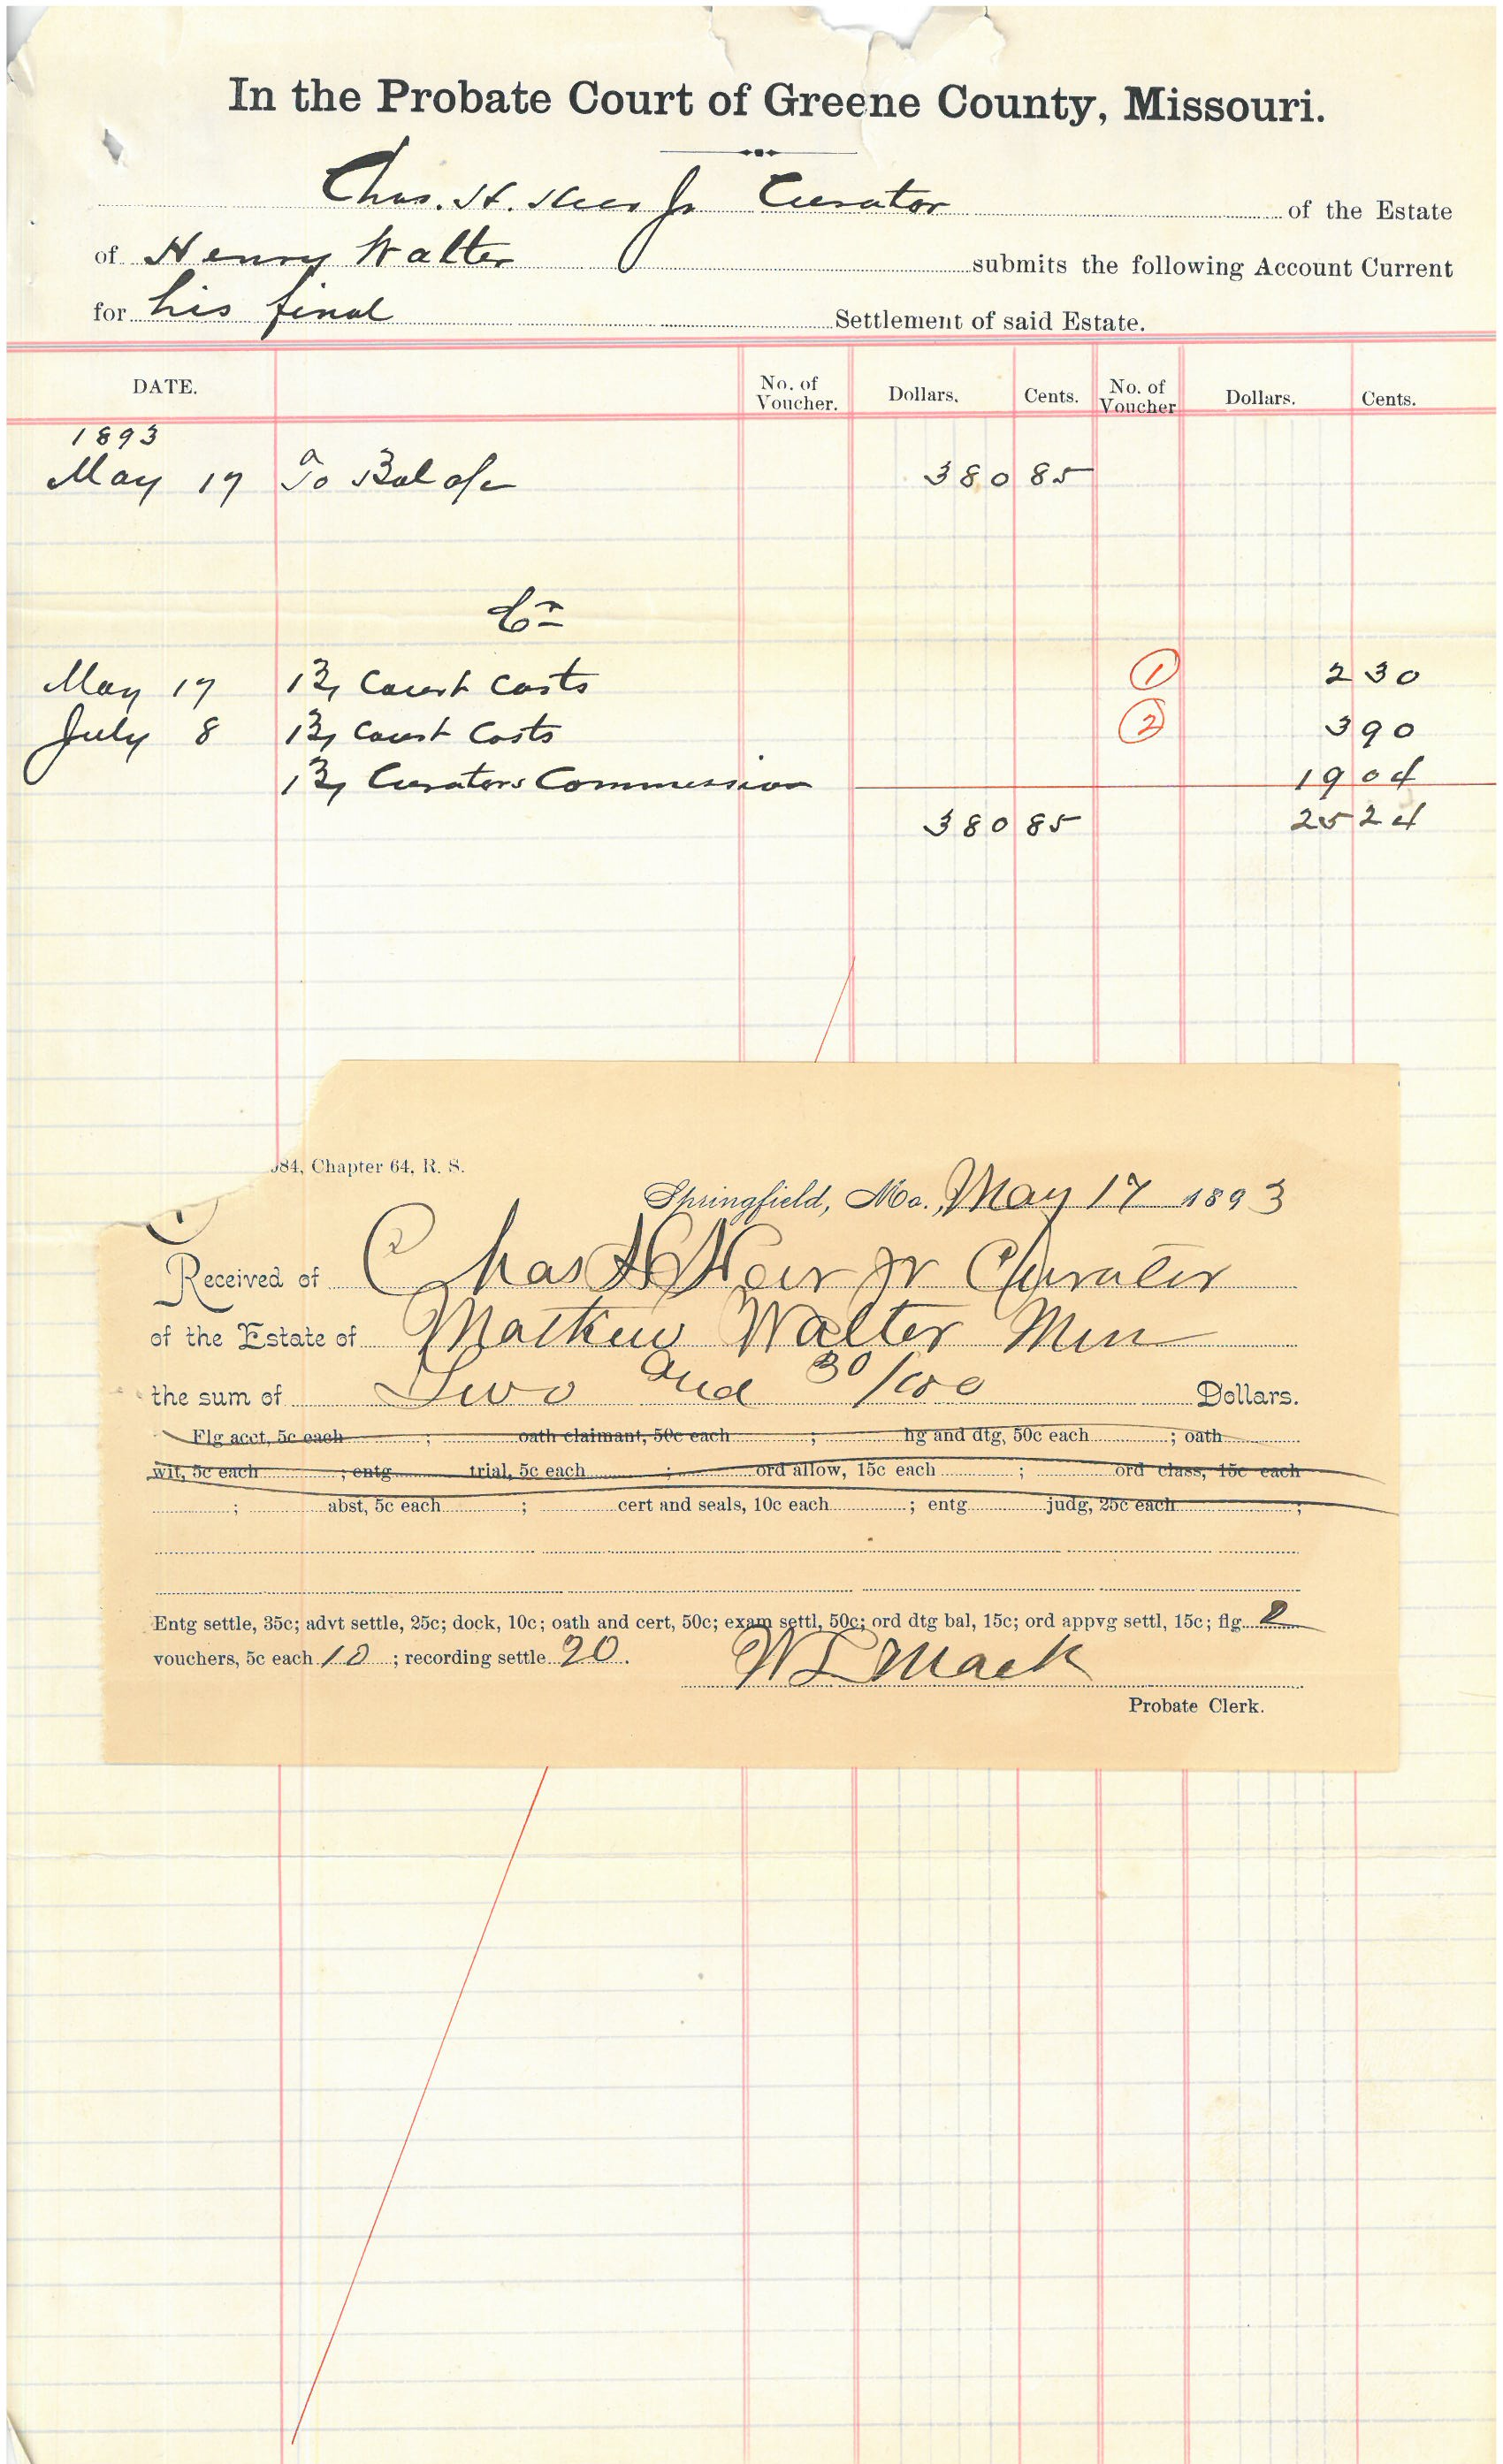 In the Probate Court of Greene County, Missouri.
Chas. H. Heer Jr Curator of the Estate
of Henry Walter submits the following Account Current
for his final Settlement of said Estate.
DATE. No. of Voucher. Dollars. Cents. No. of Voucher Dollars. Cents.
1893
May 17 To Bal a/c 380 85
Cr
May 17 By Court Costs 1 2 30
July 8 By Court Costs 2 3 90
By Curators Commission 19 04
380 85 25 24
84, Chapter 64, R. S.
Springfield, Mo., May 17 1893
1
Received of Chas H Heer Jr Curator
of the Estate of Mathew Walter Min
the sum of Two and 30/100 Dollars.
Flg acct, 5c each ; oath claimant, 50c each ; hg and dtg, 50c each ; oath
wit, 5c each ; entg trial, 5c each ; ord allow, 15c each ; ord class, 15c each
; abst, 5c each ; cert and seals, 10c each ; entg judg, 25c each ;
Entg settle, 35c; advt settle, 25c; dock, 10c; oath and cert, 50c; exam settl, 50c; ord dtg bal, 15c; ord appvg settl, 15c; flg 2
vouchers, 5c each 10 ; recording settle 20.
W L Mack
Probate Clerk.